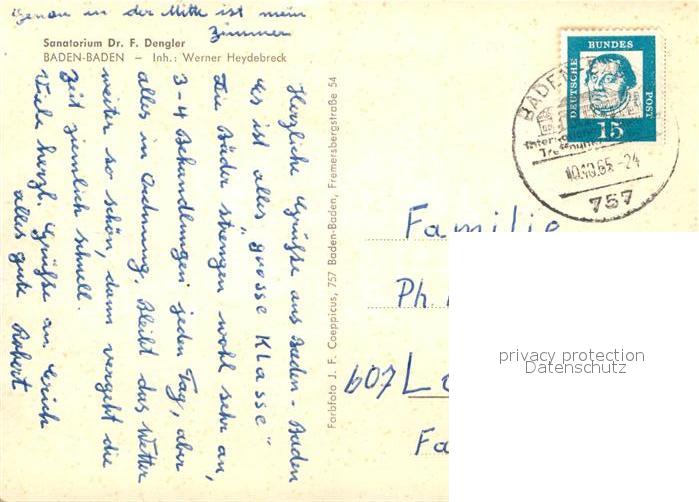 Genau in der Mitte ist mein
Zimmer
Sanatorium Dr. F. Dengler
BADEN-BADEN – Inh.: Werner Heydebreck
Herzliche Grüße aus Baden-Baden
es ist alles "grosse Klasse"
Die Bäder strengen wohl sehr an,
3-4 Behandlungen jeden Tag, aber
alles in Ordnung. Bleibt das Wetter
weiter so schön, dann vergeht die
Zeit ziemlich schnell.
Viele herzl. Grüße an Erich
alles gute Robert
Farbfoto J. F. Coeppicus, 757 Baden-Baden, Fremersbergstraße 54
DEUTSCHE
BUNDES
POST
15
BADEN
10.10.65-24
757
Familie
Ph.
607 L
Fa
privacy protection
Datenschutz